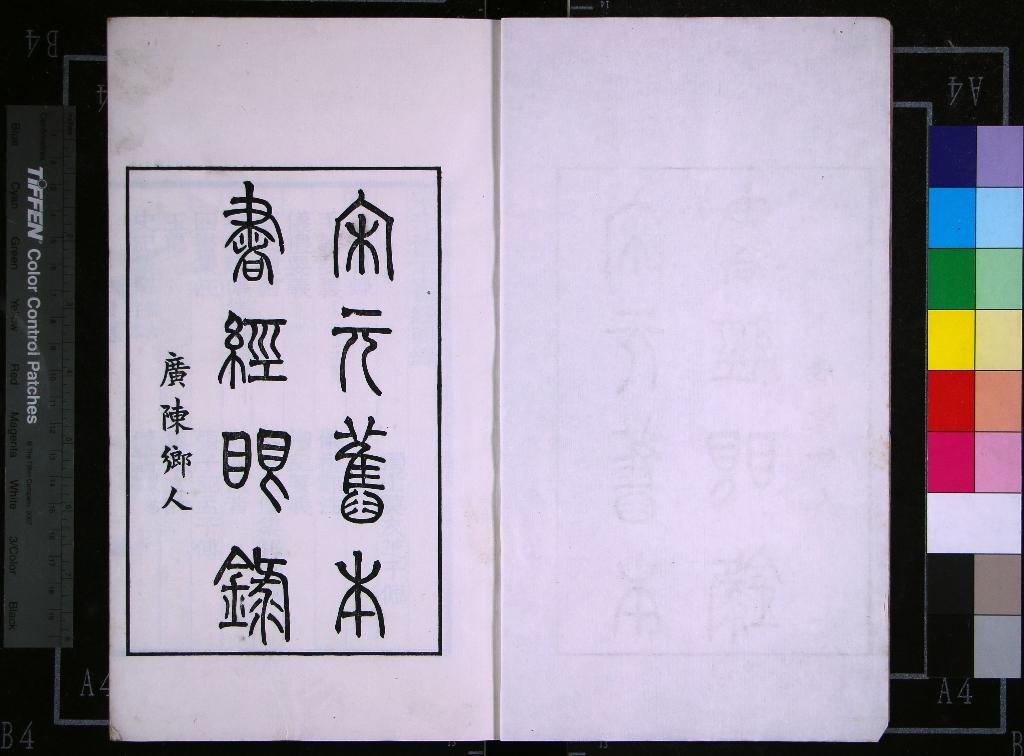 宋元舊本
書經眼錄
廣陳鄉人
TIFFEN Color Control Patches
Blue
Cyan
Green
Yellow
Red
Magenta
White
3/Color
Black
B4
A4
A4
A4
B4